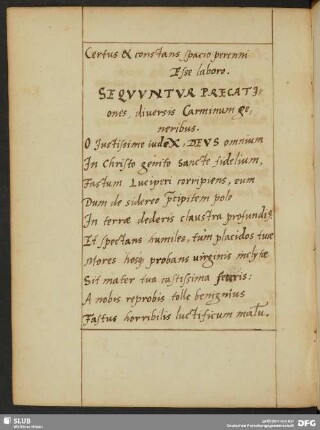 Certus & constans spacio perenni
Esse laboro.
SEQVVNTVR PRECATI-
ones, diversis Carminum ge,
neribus.
O Iustissime iudeX, DEVS omnium
In Christo genito sancte fidelium,
Fastum Luciperi corripiens, eum
Dum de sidereo p̄cipitem polo
In terræ dederis claustra profundis
Et spectans humiles, tum placidos tuæ
Mores hosq; probans virginis
Sit mater tua castissima
A nobis reprobis tolle benignius
Fastus horribilis luctificum malū.
SLUB
Wir führen Wissen.
gefördert von der
Deutschen Forschungsgemeinschaft
DFG